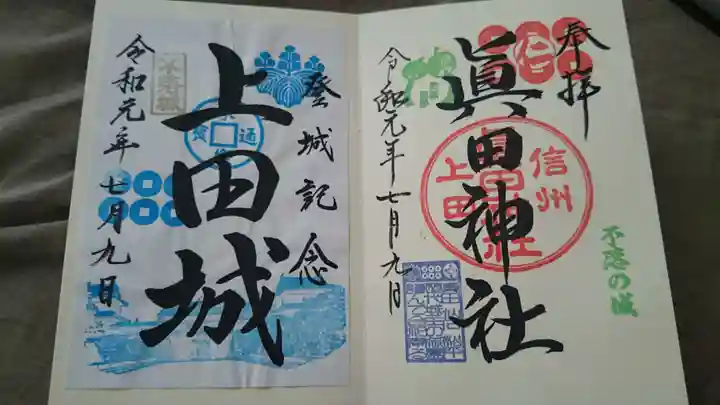 奉拝
眞田神社
信州
上田
不落の城
令和元年七月九日
登城記念
上田城
通
寳
令和元年七月九日